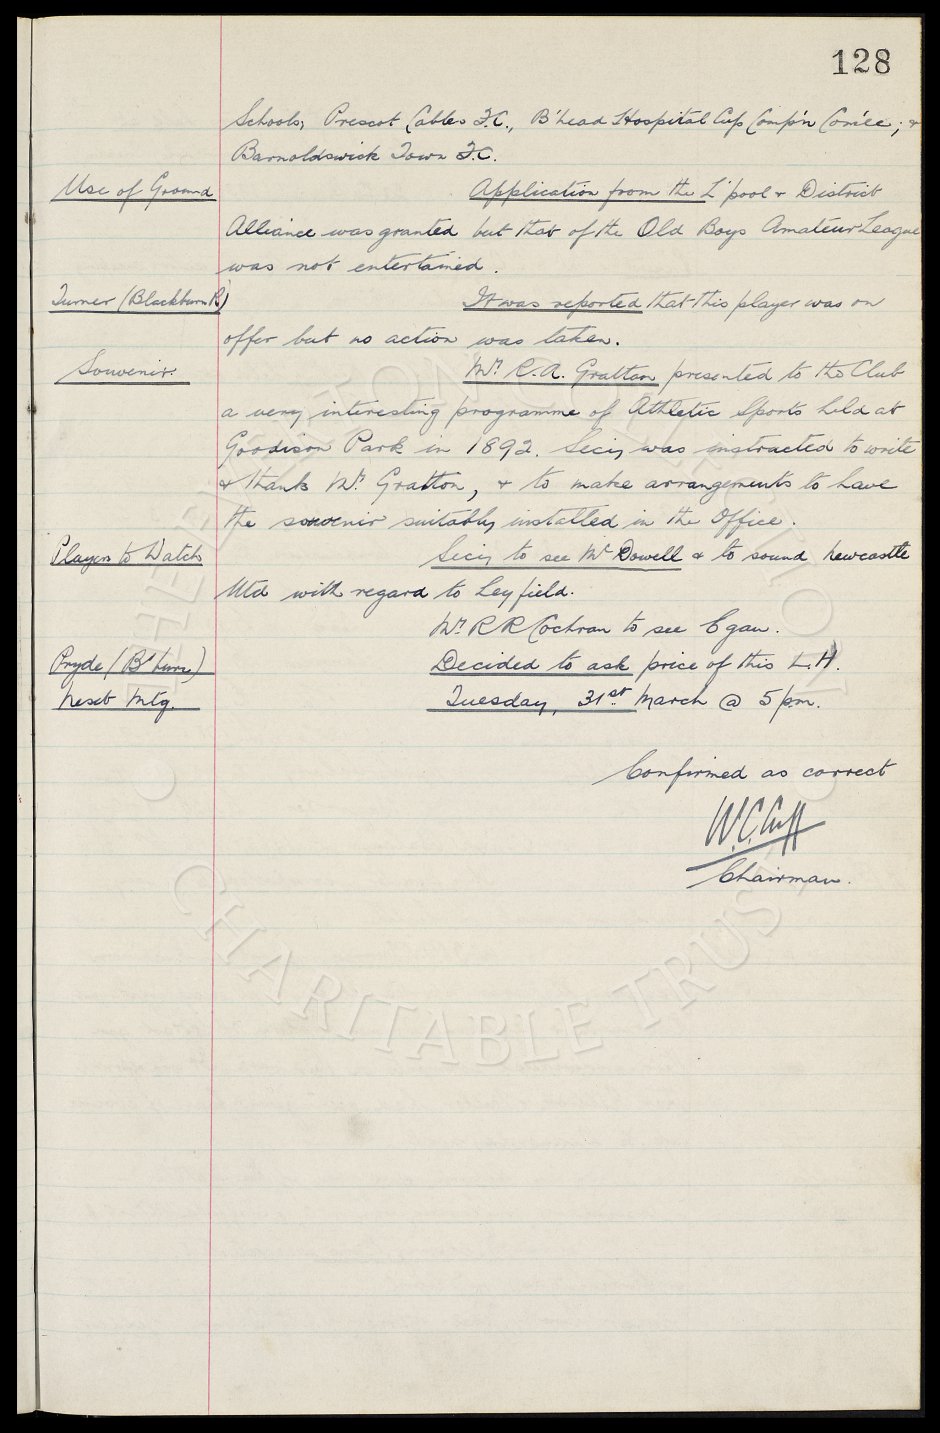 128
Schools, Prescot Cables F.C., B'head Hospital Cup Comp'n Com'ee; &
Barnoldswick Town F.C.
Use of Ground Application from the L'pool & District
Alliance was granted but that of the Old Boys Amateur League
was not entertained.
Turner (Blackburn R) It was reported that this player was on
offer but no action was taken.
Souvenir. Mr. R.A. Gratton presented to the Club
a very interesting programme of Athletic Sports held at
Goodison Park in 1892. Secy was instructed to write
& thank Mr. Gratton, & to make arrangements to have
the souvenir suitably installed in the Office.
Players to Watch Secy to see McDowell & to sound Newcastle
Utd with regard to Leyfield.
Mr. R R Cochran to see Egan.
Pryde (B'burn) Decided to ask price of this L.H.
Next Mtg. Tuesday, 31st. March @ 5 p.m.
Confirmed as correct
W.C. Cuff
Chairman.
THE EVERTON COLLECTION
CHARITABLE TRUST